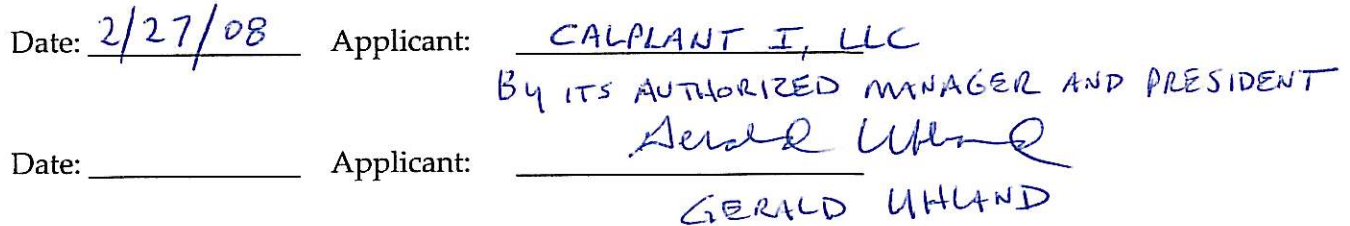 Date: 2/27/08 Applicant: CALPLANT I, LLC
By ITS AUTHORIZED MANAGER AND PRESIDENT
Gerald Uhland
Date: Applicant:
GERALD UHLAND